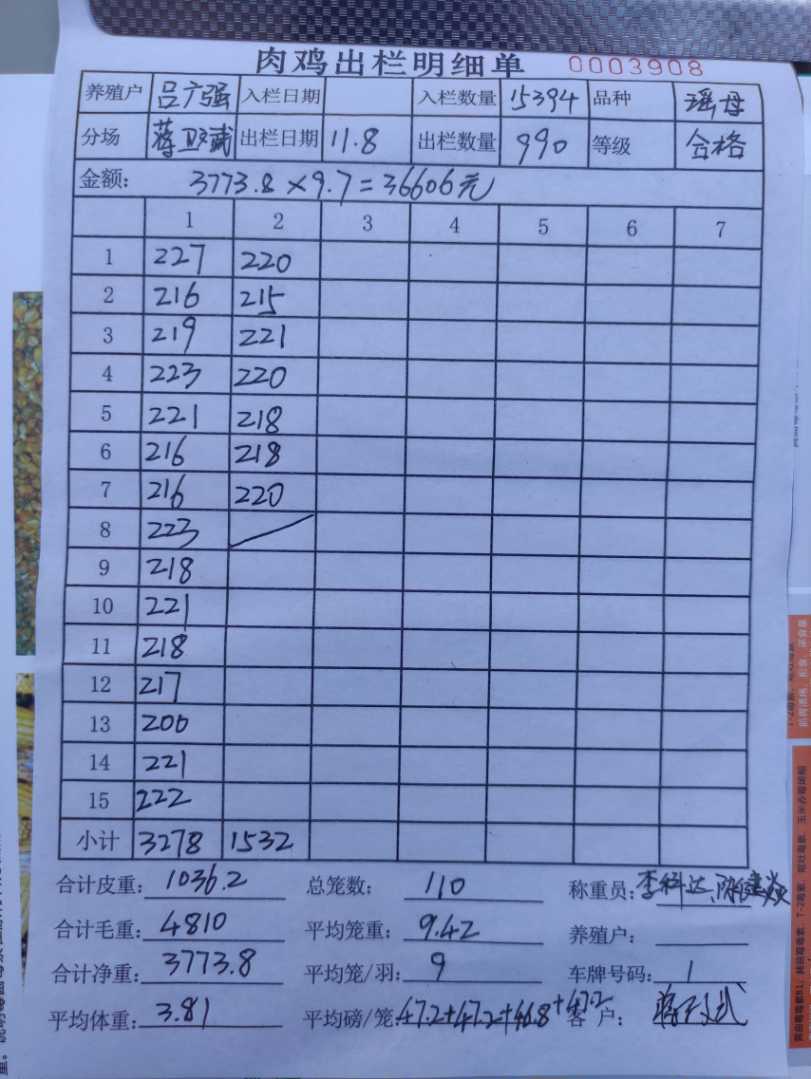 肉鸡出栏明细单 0003908
养殖户 吕广强 入栏日期 入栏数量 15394 品种 瑶母
分场 出栏日期 11.8 出栏数量 990 等级 合格
金额: 3773.8×9.7=36606元
1 2 3 4 5 6 7
1 227 220
2 216 215
3 219 221
4 223 220
5 221 218
6 216 218
7 216 220
8 223
9 218
10 221
11 218
12 217
13 200
14 221
15 222
小计 3278 1532
合计皮重: 1036.2 总笼数: 110 称重员: 李科达、陈健焱
合计毛重: 4810 平均笼重: 9.42 养殖户:
合计净重: 3773.8 平均笼/羽: 9 车牌号码: 1
平均体重: 3.81 平均磅/笼: 47.2+47.2+46.8+47.2 客户: